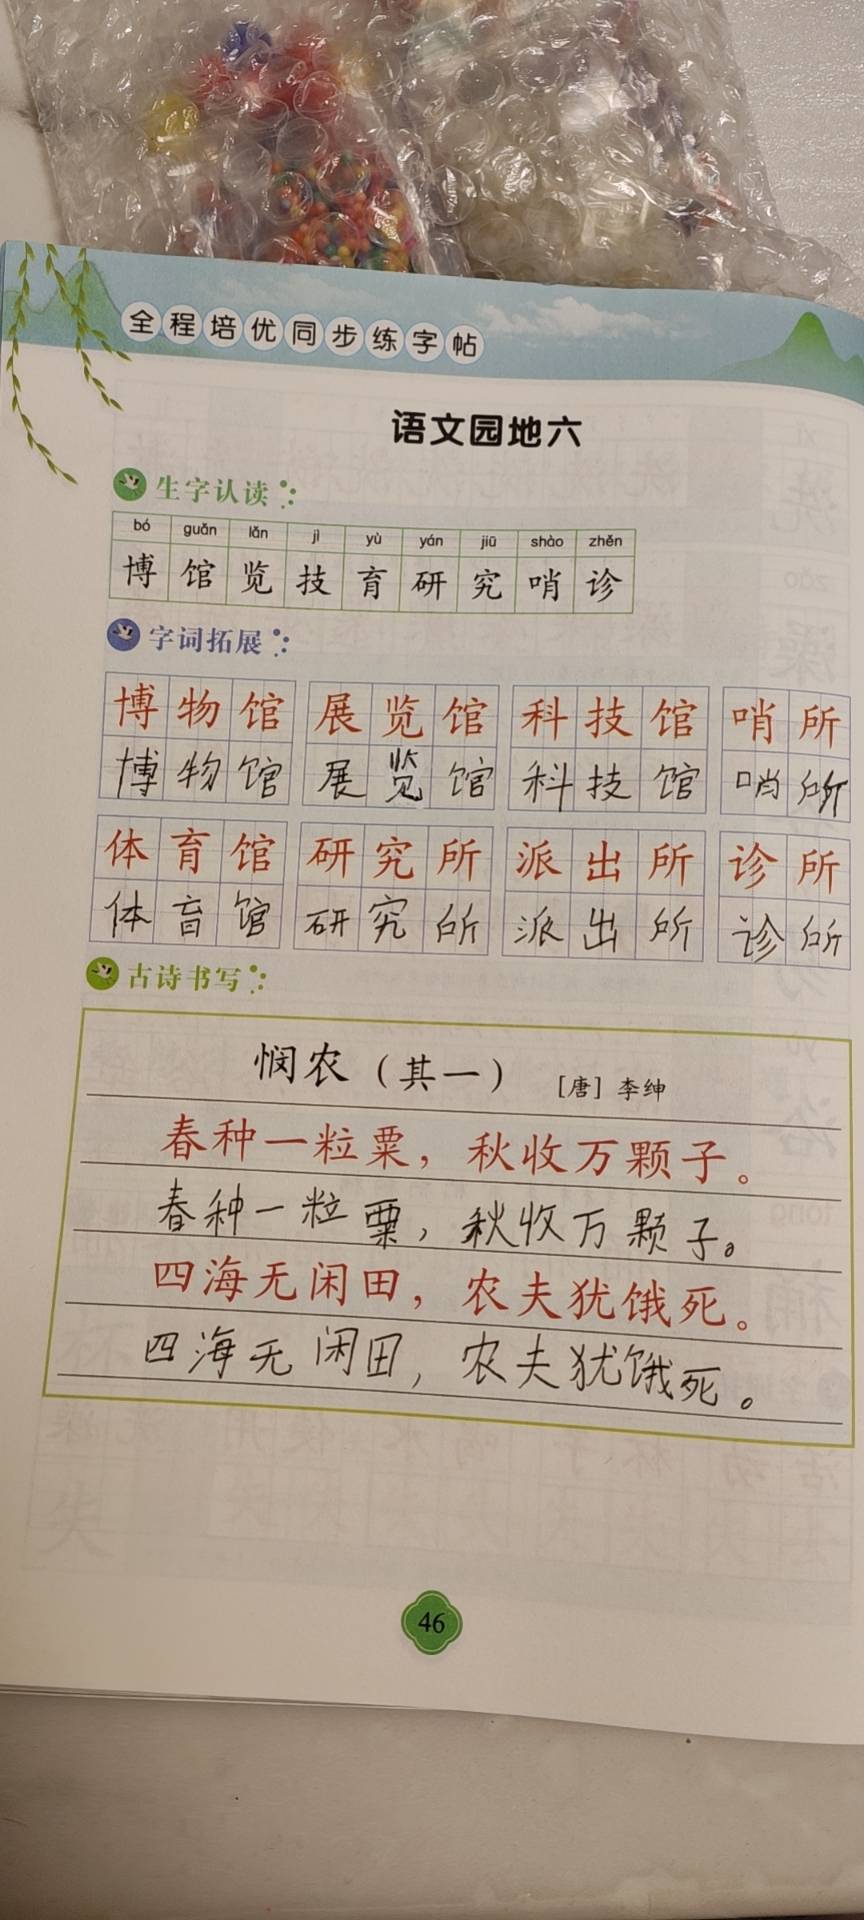 全程培优同步练字帖
语文园地六
生字认读
bó guǎn lǎn jì yù yán jiū shào zhěn
博 馆 览 技 育 研 究 哨 诊
字词拓展
博物馆 展览馆 科技馆 哨所
博物馆 展览馆 科技馆 哨所
体育馆 研究所 派出所 诊所
体育馆 研究所 派出所 诊所
古诗书写
悯农（其一） ［唐］李绅
春种一粒粟，秋收万颗子。
春种一粒粟，秋收万颗子。
四海无闲田，农夫犹饿死。
四海无闲田，农夫犹饿死。
46